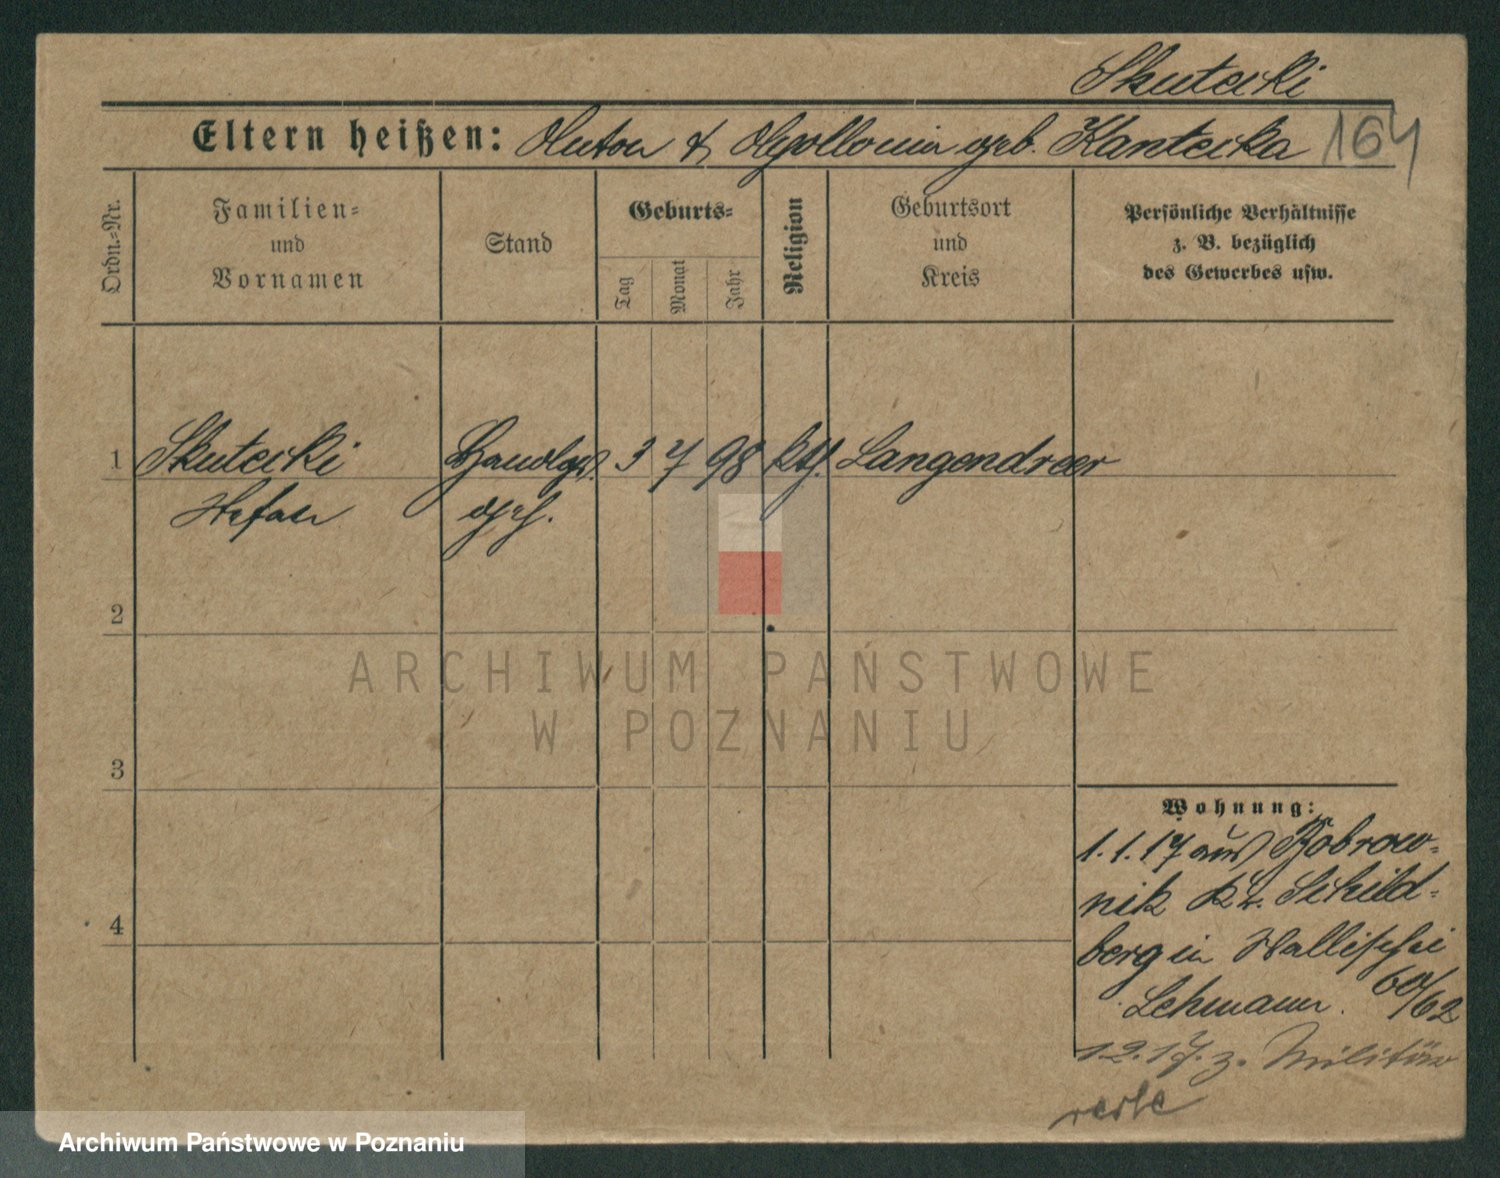 Skutecki
Eltern heißen: Anton & Apollonia geb. Kantecka 164
Ordn.-Nr.
Familien-
und
Vornamen
Stand
Geburts-
Tag
Monat
Jahr
Religion
Geburtsort
und
Kreis
Persönliche Verhältnisse
z. B. bezüglich
des Gewerbes usw.
1 Skutecki Handlgs. 3 7 98 kth. Langendreer
Stefan geh.
2
3
4
ARCHIWUM PAŃSTWOWE
W POZNANIU
Wohnung:
1.1.17 aus Bobrow-
nik Kr. Schild-
berg in Wallischei
Lehmann. 60/62
12.17. z. Militär
Archiwum Państwowe w Poznaniu